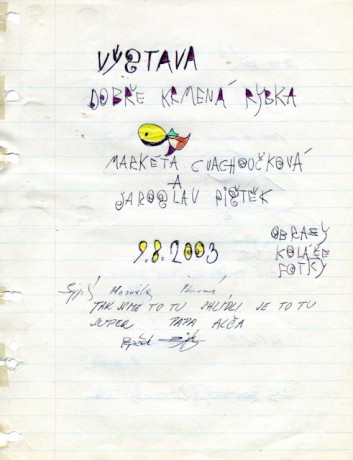 VÝSTAVA
DOBŘE KRMENÁ RYBKA
MARKÉTA CVACHOUČKOVÁ
A
JAROSLAV PIŠTĚK
9.8.2003
OBRAZY
KOLÁŽE
FOTKY
TAK JSME TO TU SHLÍDLI JE TO TU
SUPER PAPA ALČA